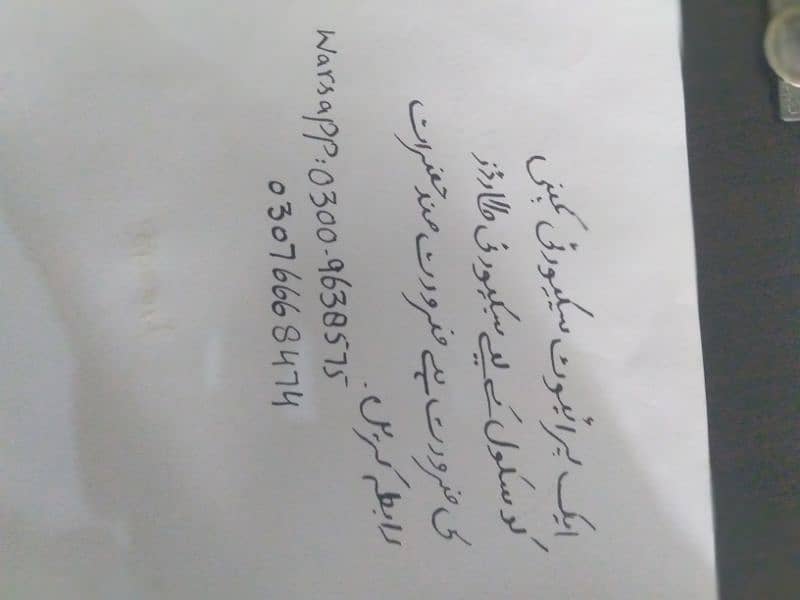 ایک پرائیوٹ سیکیورٹی کمپنی
کو سکول کے لیے سیکیورٹی گارڈز
کی ضرورت ہے ضرورت مند حضرات
رابطہ کریں.
Warsapp:0300-9638575
03076668474